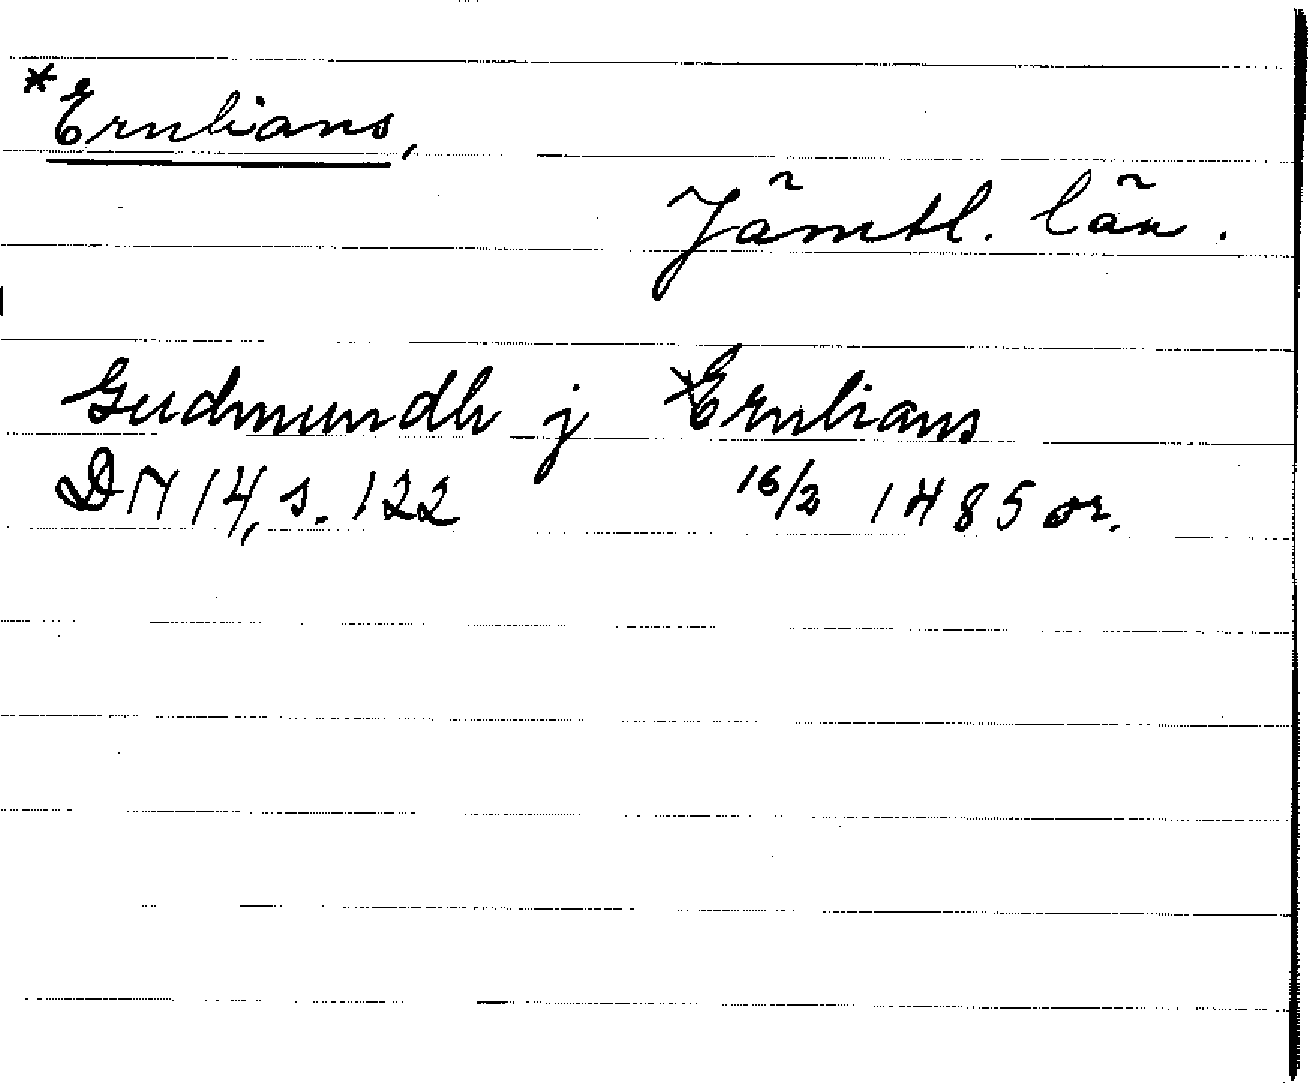 *Ernbians,
Jämtl. län.
Gudmundh j *Ernbians
DN 14, s. 122 16/2 1485 or.